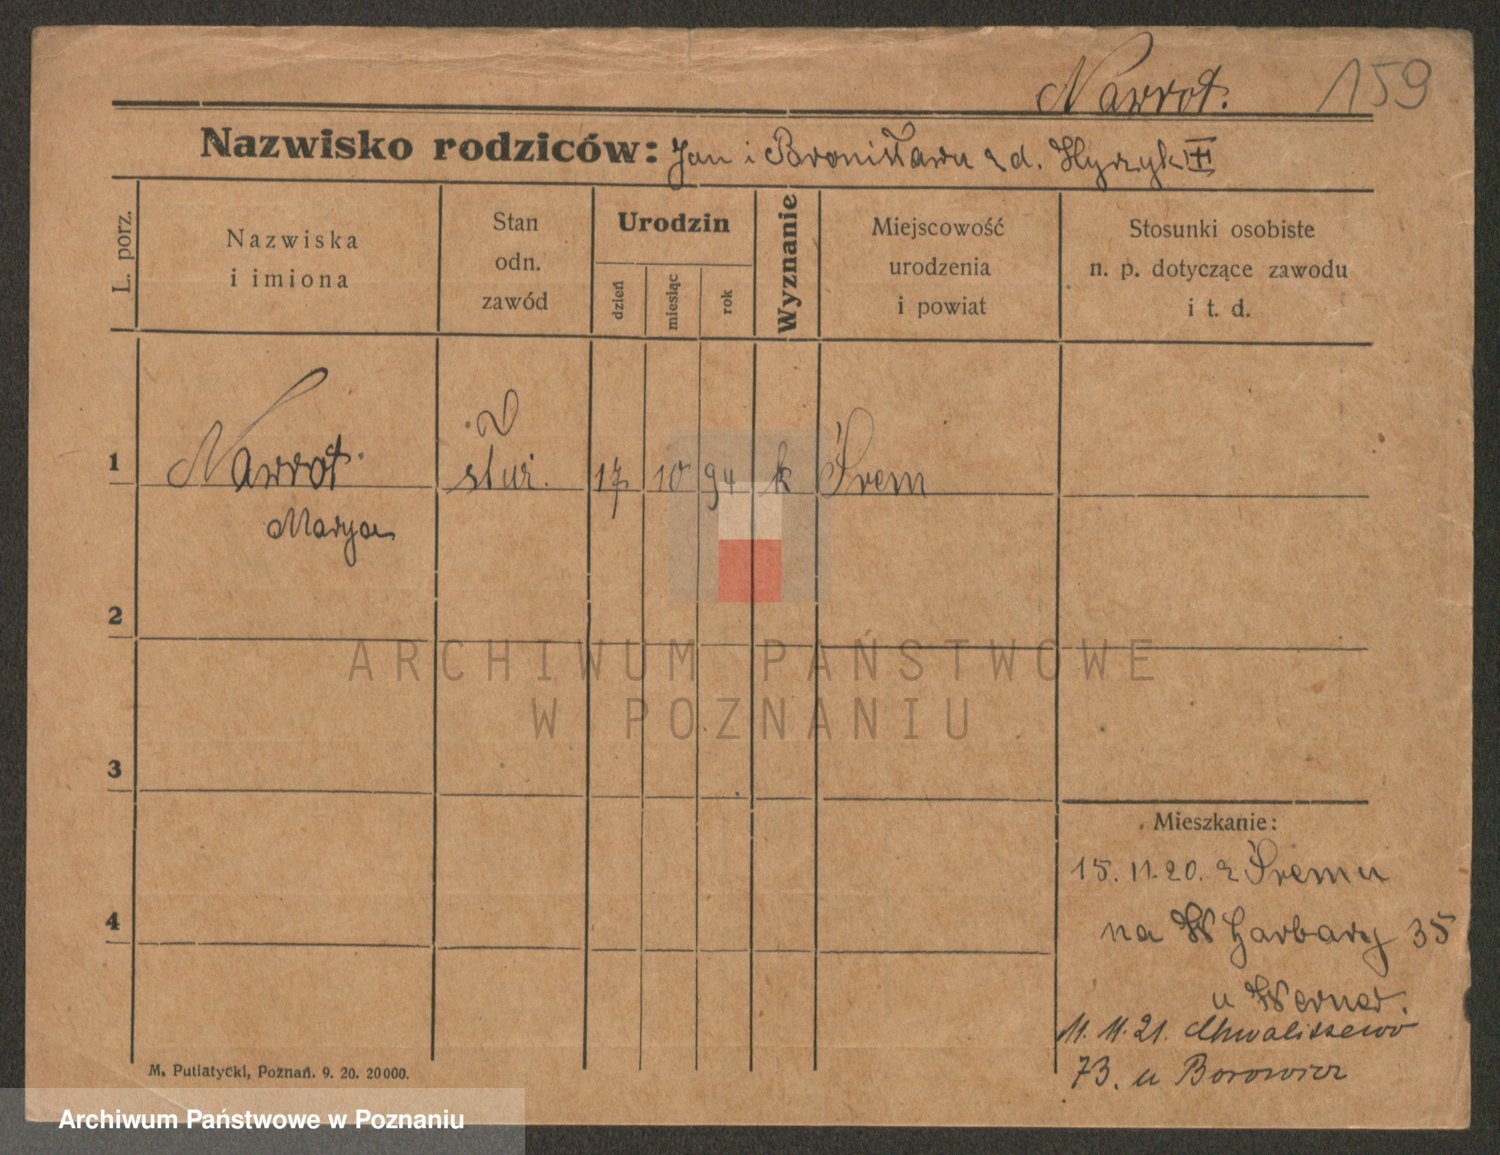 Nawrot. 159
Nazwisko rodziców: Jan i Bronisława z d.
L. porz.
Nazwiska
i imiona
Stan
odn.
zawód
Urodzin
dzień
miesiąc
rok
Wyznanie
Miejscowość
urodzenia
i powiat
Stosunki osobiste
n. p. dotyczące zawodu
i t. d.
1 Nawrot służ. 17 10 94 k Śrem
Marya
2
3
4
ARCHIWUM PAŃSTWOWE
W POZNANIU
Mieszkanie:
15.11.20. z Śremu
na W Garbary 35
u Werner.
11.11.21. Chwaliszewo
73. u Borowicz
M. Putiatycki, Poznań. 9. 20. 20000.
Archiwum Państwowe w Poznaniu